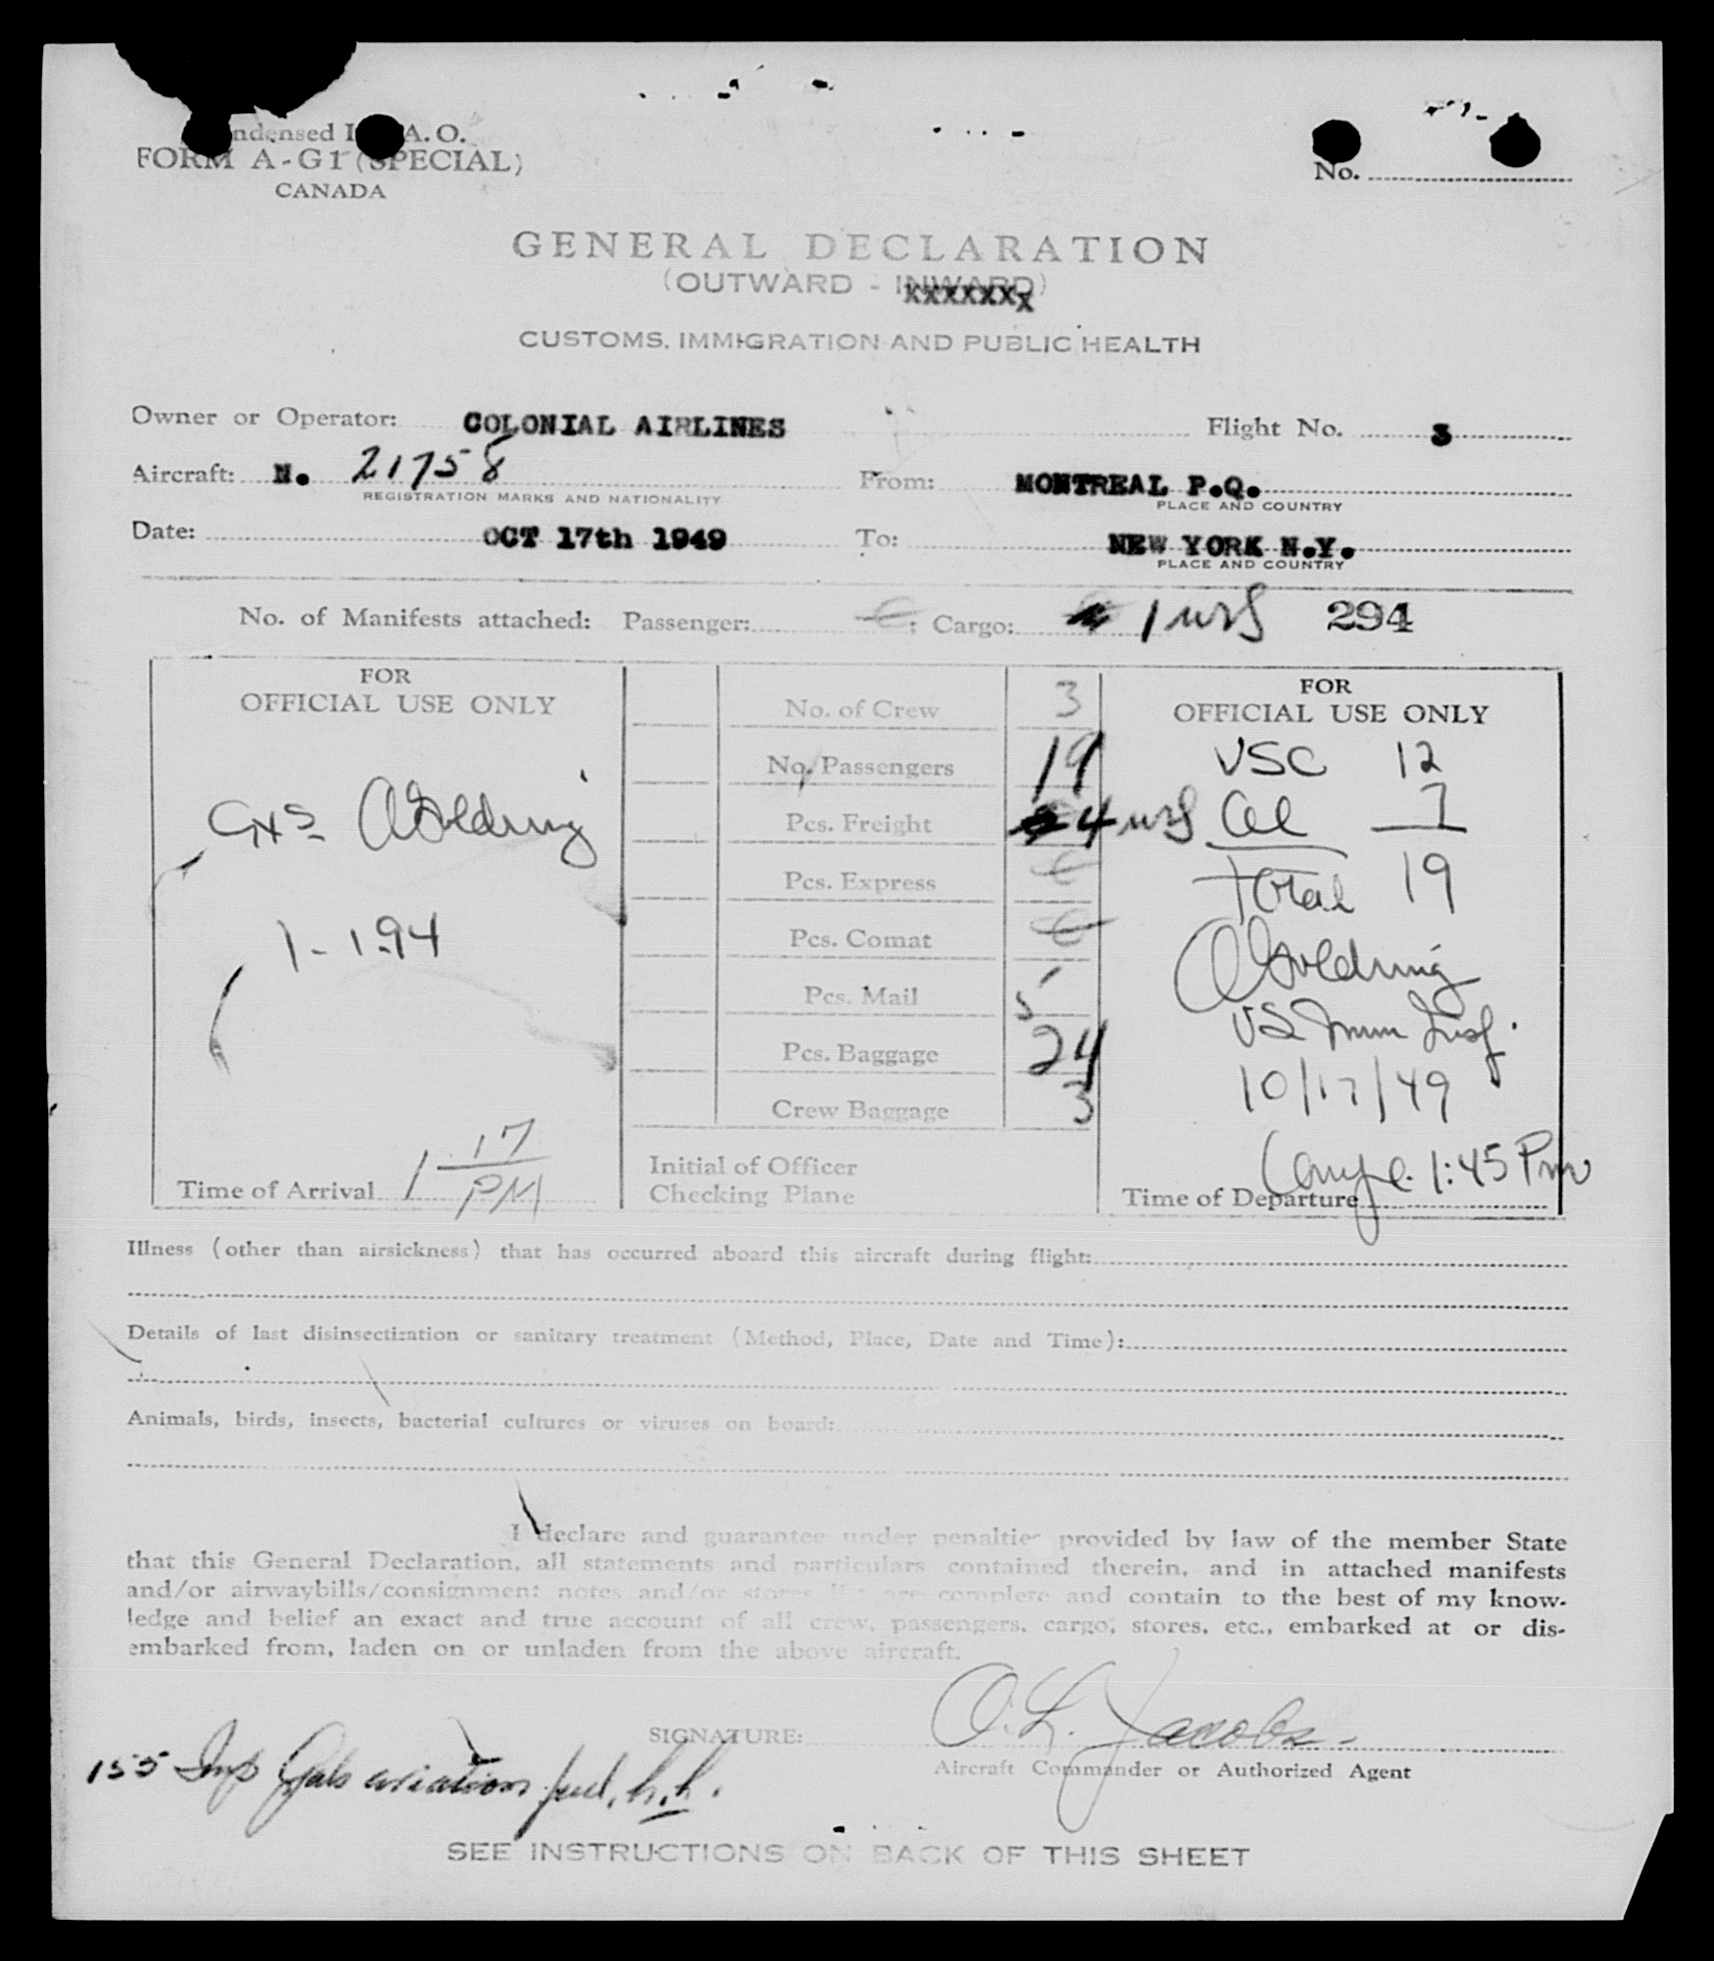 ndensed I A.O.
FORM A-G1 (SPECIAL)
CANADA
No.
GENERAL DECLARATION
(OUTWARD - INWARD)
xxxxxxx
CUSTOMS, IMMIGRATION AND PUBLIC HEALTH
Owner or Operator: COLONIAL AIRLINES Flight No. 3
Aircraft: N. 21758 From: MONTREAL P.Q.
REGISTRATION MARKS AND NATIONALITY PLACE AND COUNTRY
Date: OCT 17th 1949 To: NEW YORK N.Y.
PLACE AND COUNTRY
No. of Manifests attached: Passenger: ; Cargo: 1 294
FOR
OFFICIAL USE ONLY
AGoldring
1-194
Time of Arrival 1 17
PM
No. of Crew 3
No. Passengers 19
Pcs. Freight 4
Pcs. Express
Pcs. Comat
Pcs. Mail 5
Pcs. Baggage 24
Crew Baggage 3
Initial of Officer
Checking Plane
FOR
OFFICIAL USE ONLY
USC 12
Al 7
Total 19
AGoldring
US Imm Insp.
10/17/49
1:45 Pm
Time of Departure
Illness (other than airsickness) that has occurred aboard this aircraft during flight:
Details of last disinsectization or sanitary treatment (Method, Place, Date and Time):
Animals, birds, insects, bacterial cultures or viruses on board:
I declare and guarantee under penalties provided by law of the member State
that this General Declaration, all statements and particulars contained therein, and in attached manifests
and/or airwaybills/consignment notes and/or stores list are complete and contain to the best of my know-
ledge and belief an exact and true account of all crew, passengers, cargo, stores, etc., embarked at or dis-
embarked from, laden on or unladen from the above aircraft.
SIGNATURE: O.L. Jacobs
Aircraft Commander or Authorized Agent
155 Imp Gals aviation fuel, h.h.
SEE INSTRUCTIONS ON BACK OF THIS SHEET